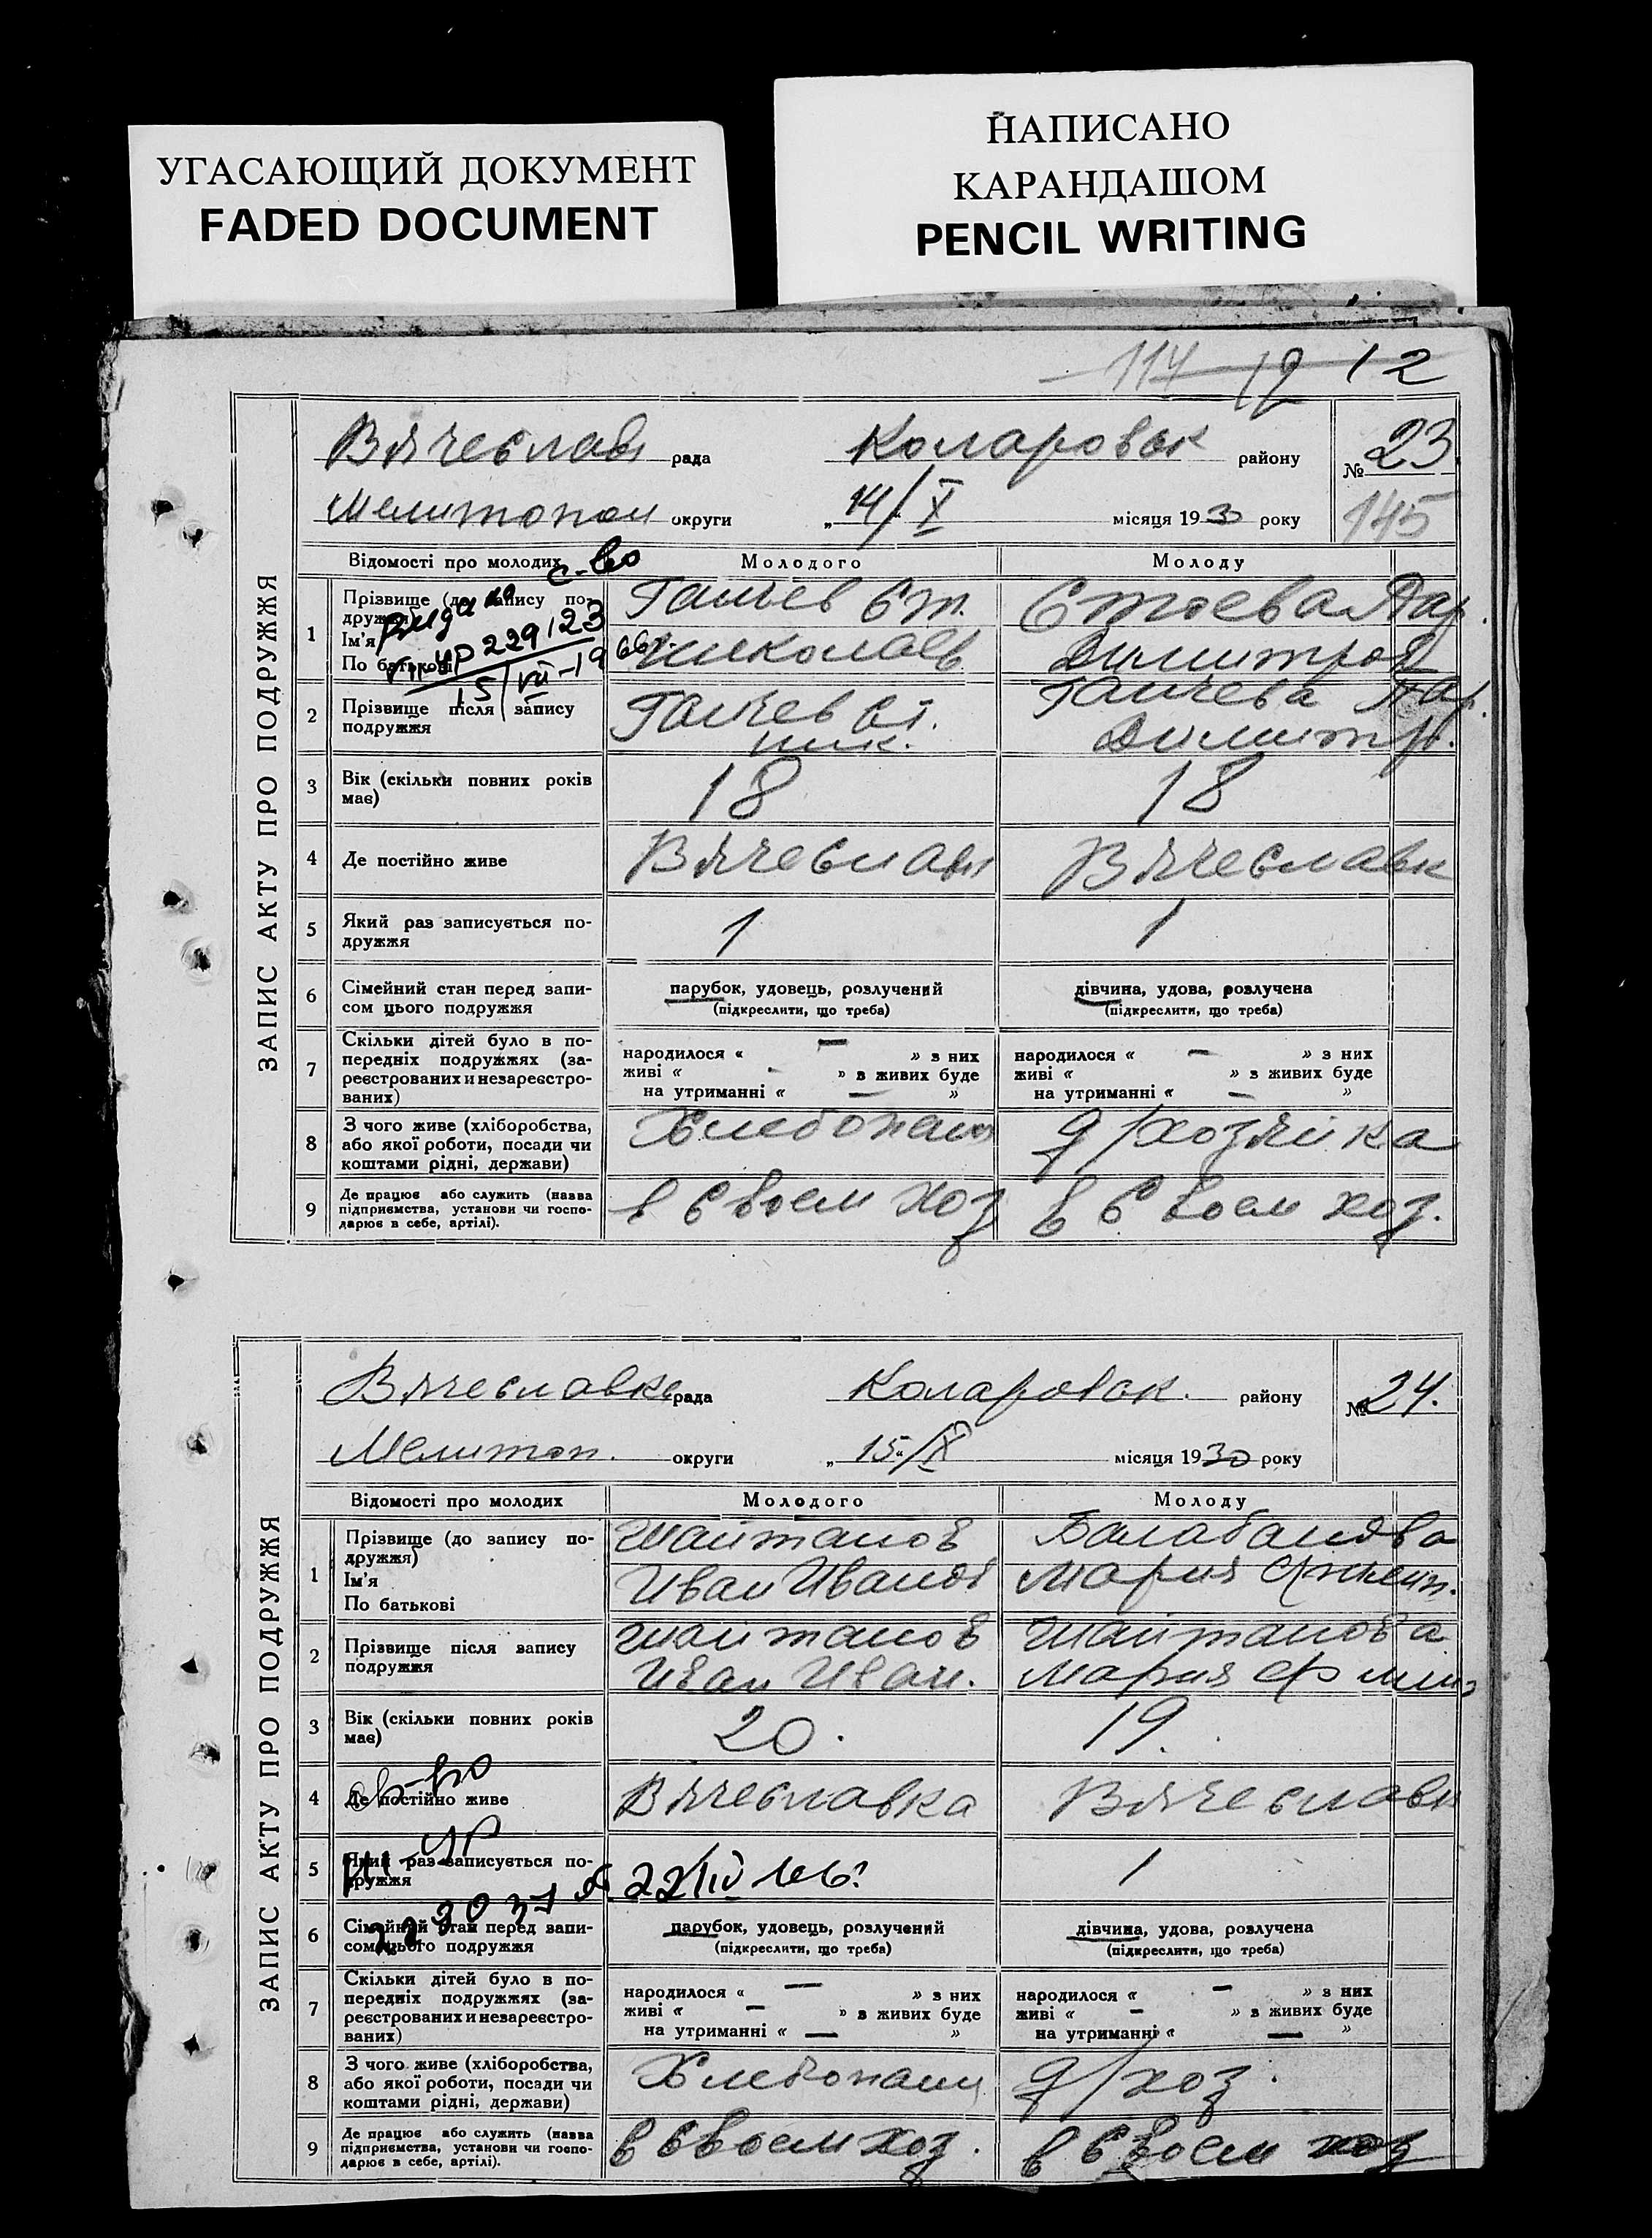 УГАСАЮЩИЙ ДОКУМЕНТ
FADED DOCUMENT
НАПИСАНО
КАРАНДАШОМ
PENCIL WRITING
114 12 12
ЗАПИС АКТУ ПРО ПОДРУЖЖЯ
Вячеславк рада Коларовск району № 23
Мелитопол округи „14/X місяця 1930 року 145
Відомості про молодих Молодого Молоду
с-во
Видано
229123
15/VII-1966
1 Прізвище (до запису подружжя)
Ім'я
По батькові
Ганчев Ст.
Николаев
Стоева Пар.
Димитров
2 Прізвище після запису
подружжя
Ганчев Ст.
Ник.
Ганчева Пар.
Димитр.
3 Вік (скільки повних років
має)
18 18
4 Де постійно живе Вячеславк Вячеславк
5 Який раз записується по-
дружжя
1 1
6 Сімейний стан перед запи-
сом цього подружжя
парубок, удовець, розлучений
(підкреслити, що треба)
дівчина, удова, розлучена
(підкреслити, що треба)
7 Скільки дітей було в по-
передніх подружжях (за-
реєстрованих и незареєстро-
ваних)
народилося « — » з них
живі « - » в живих буде
на утриманні « — »
народилося « — » з них
живі « » в живих буде
на утриманні « — »
8 З чого живе (хліборобства,
або якої роботи, посади чи
коштами рідні, держави)
Хлебопаш д/хозяйка
9 Де працює або служить (назва
підприємства, установи чи госпо-
дарює в себе, артілі).
в своем хоз в своем хоз.
ЗАПИС АКТУ ПРО ПОДРУЖЖЯ
Вячеславка рада Коларовск. району № 24.
Мелитоп. округи „15“/X місяця 1930 року
Відомості про молодих Молодого Молоду
1 Прізвище (до запису по-
дружжя)
Ім'я
По батькові
Шайтанов
Иван Иванов
Балабанова
Мария
2 Прізвище після запису
подружжя
Шайтанов
Иван Иван.
Шайтанова
Мария
3 Вік (скільки повних років
має)
20. 19.
4 Де постійно живе Вячеславка Вячеславк
св-во
5 Який раз записується по-
дружжя
1
6 Сімейний стан перед запи-
сом цього подружжя
парубок, удовець, розлучений
(підкреслити, що треба)
дівчина, удова, розлучена
(підкреслити, що треба)
7 Скільки дітей було в по-
передніх подружжях (за-
реєстрованих и незареєстро-
ваних)
народилося « — » з них
живі « — » в живих буде
на утриманні « — »
народилося « — » з них
живі « — » в живих буде
на утриманні « — »
8 З чого живе (хліборобства,
або якої роботи, посади чи
коштами рідні, держави)
Хлебопаш д/хоз.
9 Де працює або служить (назва
підприємства, установи чи госпо-
дарює в себе, артілі).
в своем хоз. в своем хоз